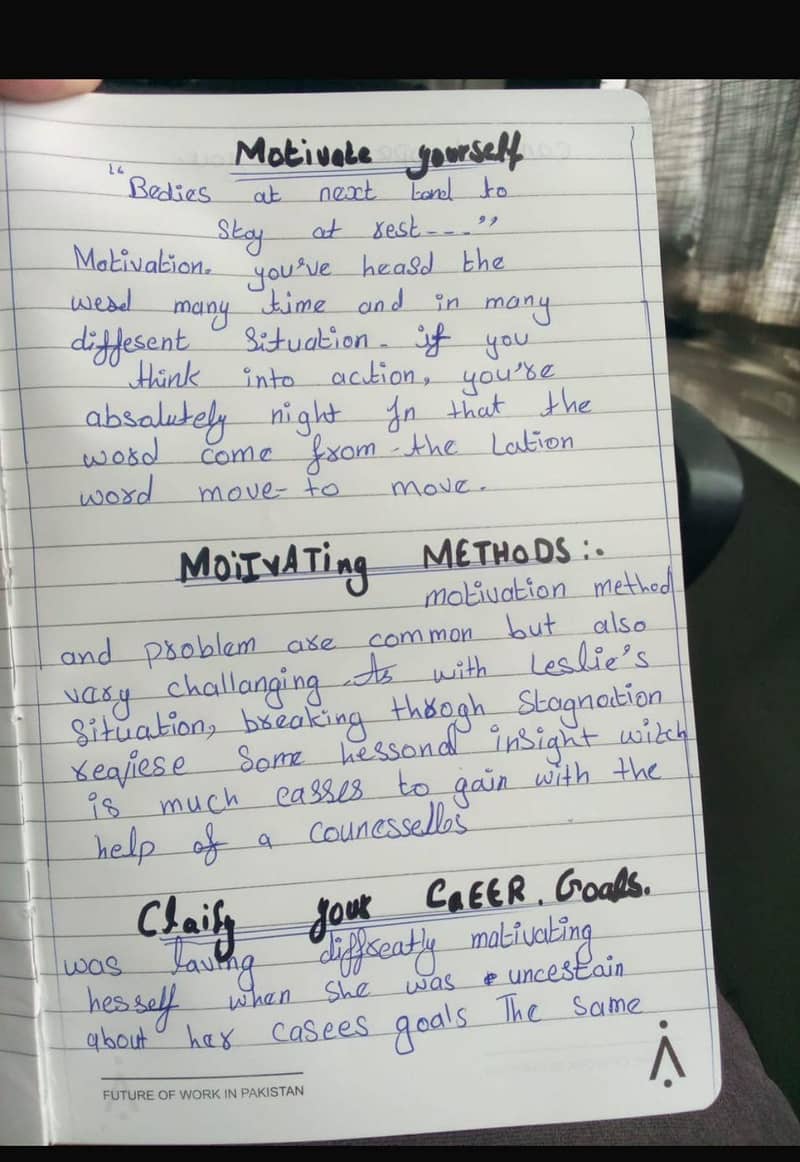 Motivate yourself
"Bedies at next tand to
Stay at rest---"
Motivation. you've heard the
word many time and in many
different Situation. if you
think into action, you're
absalutely night In that the
word come from the Lation
word move- to move.
MOiIVATing METHODS:.
motivation method
and problem are common but also
vary challanging As with Leslie's
Situation, breaking throgh Stagnation
Some hessonal insight witch
is much easses to gain with the
help of a counessellos
Claify your CaEER. Goals.
was diffreatly mativating
hesself when She was uncestain
about her casees goals The Same
FUTURE OF WORK IN PAKISTAN